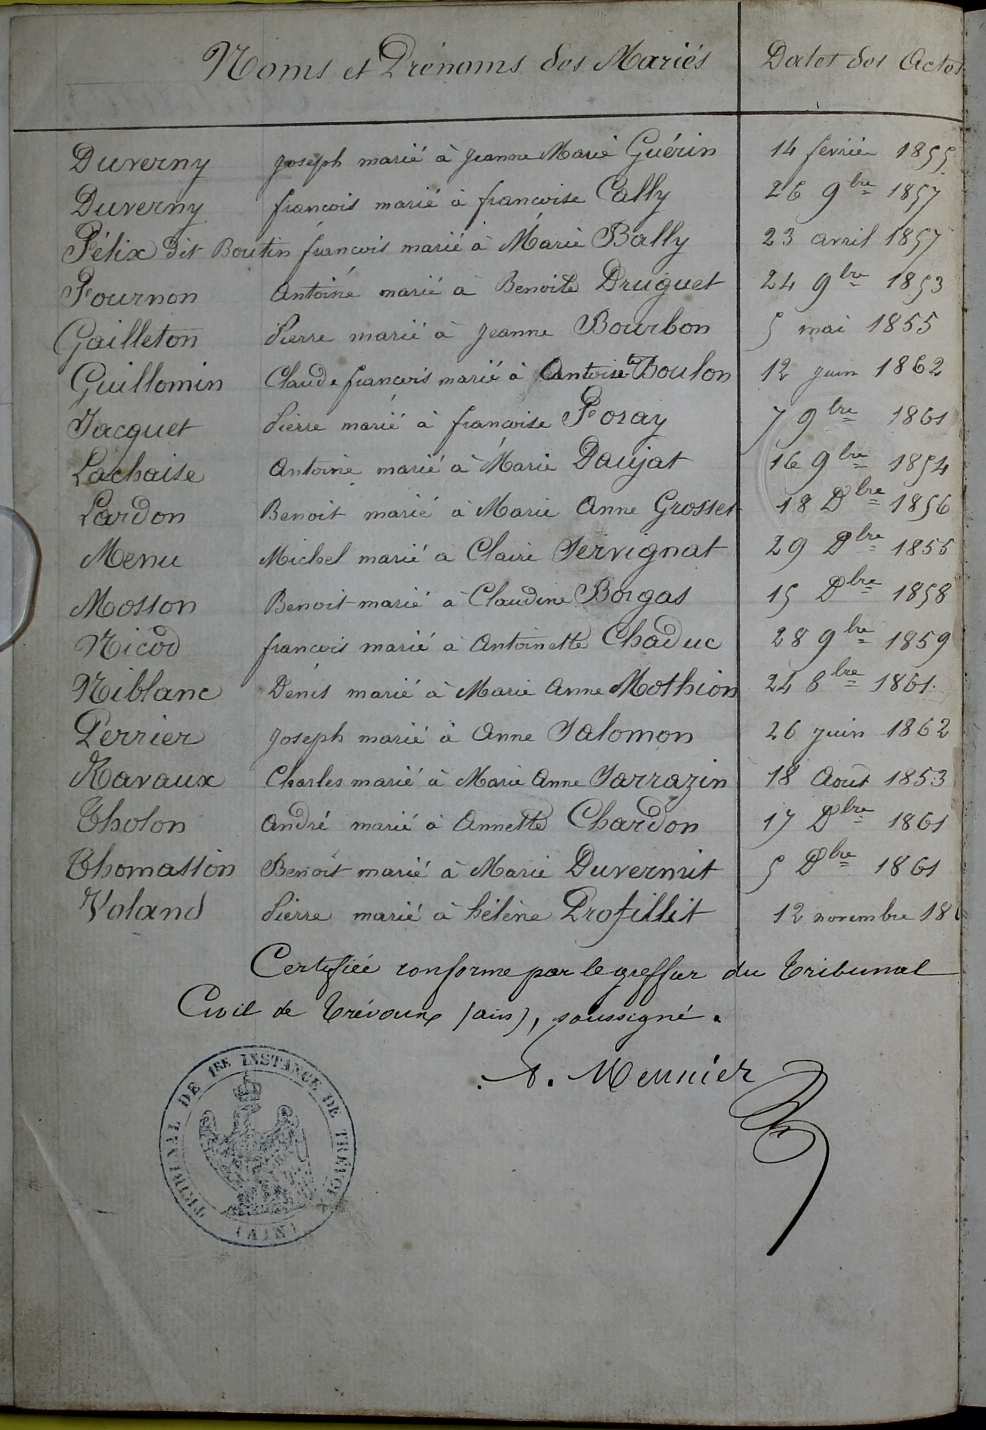 Noms et Prénoms des Mariés Dates des Actes
Duverny joseph marié à jeanne Marie Guérin 14 février 1855
Duverny francois marié à francoise Cally 26 9bre 1857
Félix dit Boutin francois marié à Marie Bally 23 avril 1857
Fournon Antoine marié à Benoite Druguet 24 9bre 1853
Gailleton Pierre marié à jeanne Bourbon 5 mai 1855
Guillomin Claude francois marié à Antoitte Boulon 12 juin 1862
Jacquet Pierre marié à francoise Foray 7 9bre 1861
Lachaise Antoine marié à Marie Daujat 16 9bre 1854
Lardon Benoit marié à Marie Anne Grosset 18 Dbre 1856
Menu Michel marié à Claire Servignat 29 Dbre 1855
Mosson Benoit marié à Claudine Borgas 15 Dbre 1858
Nicod francois marié à Antoinette Chaduc 28 9bre 1859
Niblanc Denis marié à Marie Anne Mothion 24 8bre 1861
Perrier joseph marié à Anne Salomon 26 juin 1862
Ravaux Charles marié à Marie Anne Sarrazin 18 Août 1853
Tholon André marié à Annette Chardon 17 Dbre 1861
Thomasson Benoit marié à Marie Duvernit 5 Dbre 1861
Voland Pierre marié à hélène Profillit 12 novembre 18
Certifiée conforme par le greffier du Tribunal
Civil de Trévoux (ain), soussigné.
A. Meunier
TRIBUNAL DE 1RE INSTANCE DE TREVOUX
(AIN)